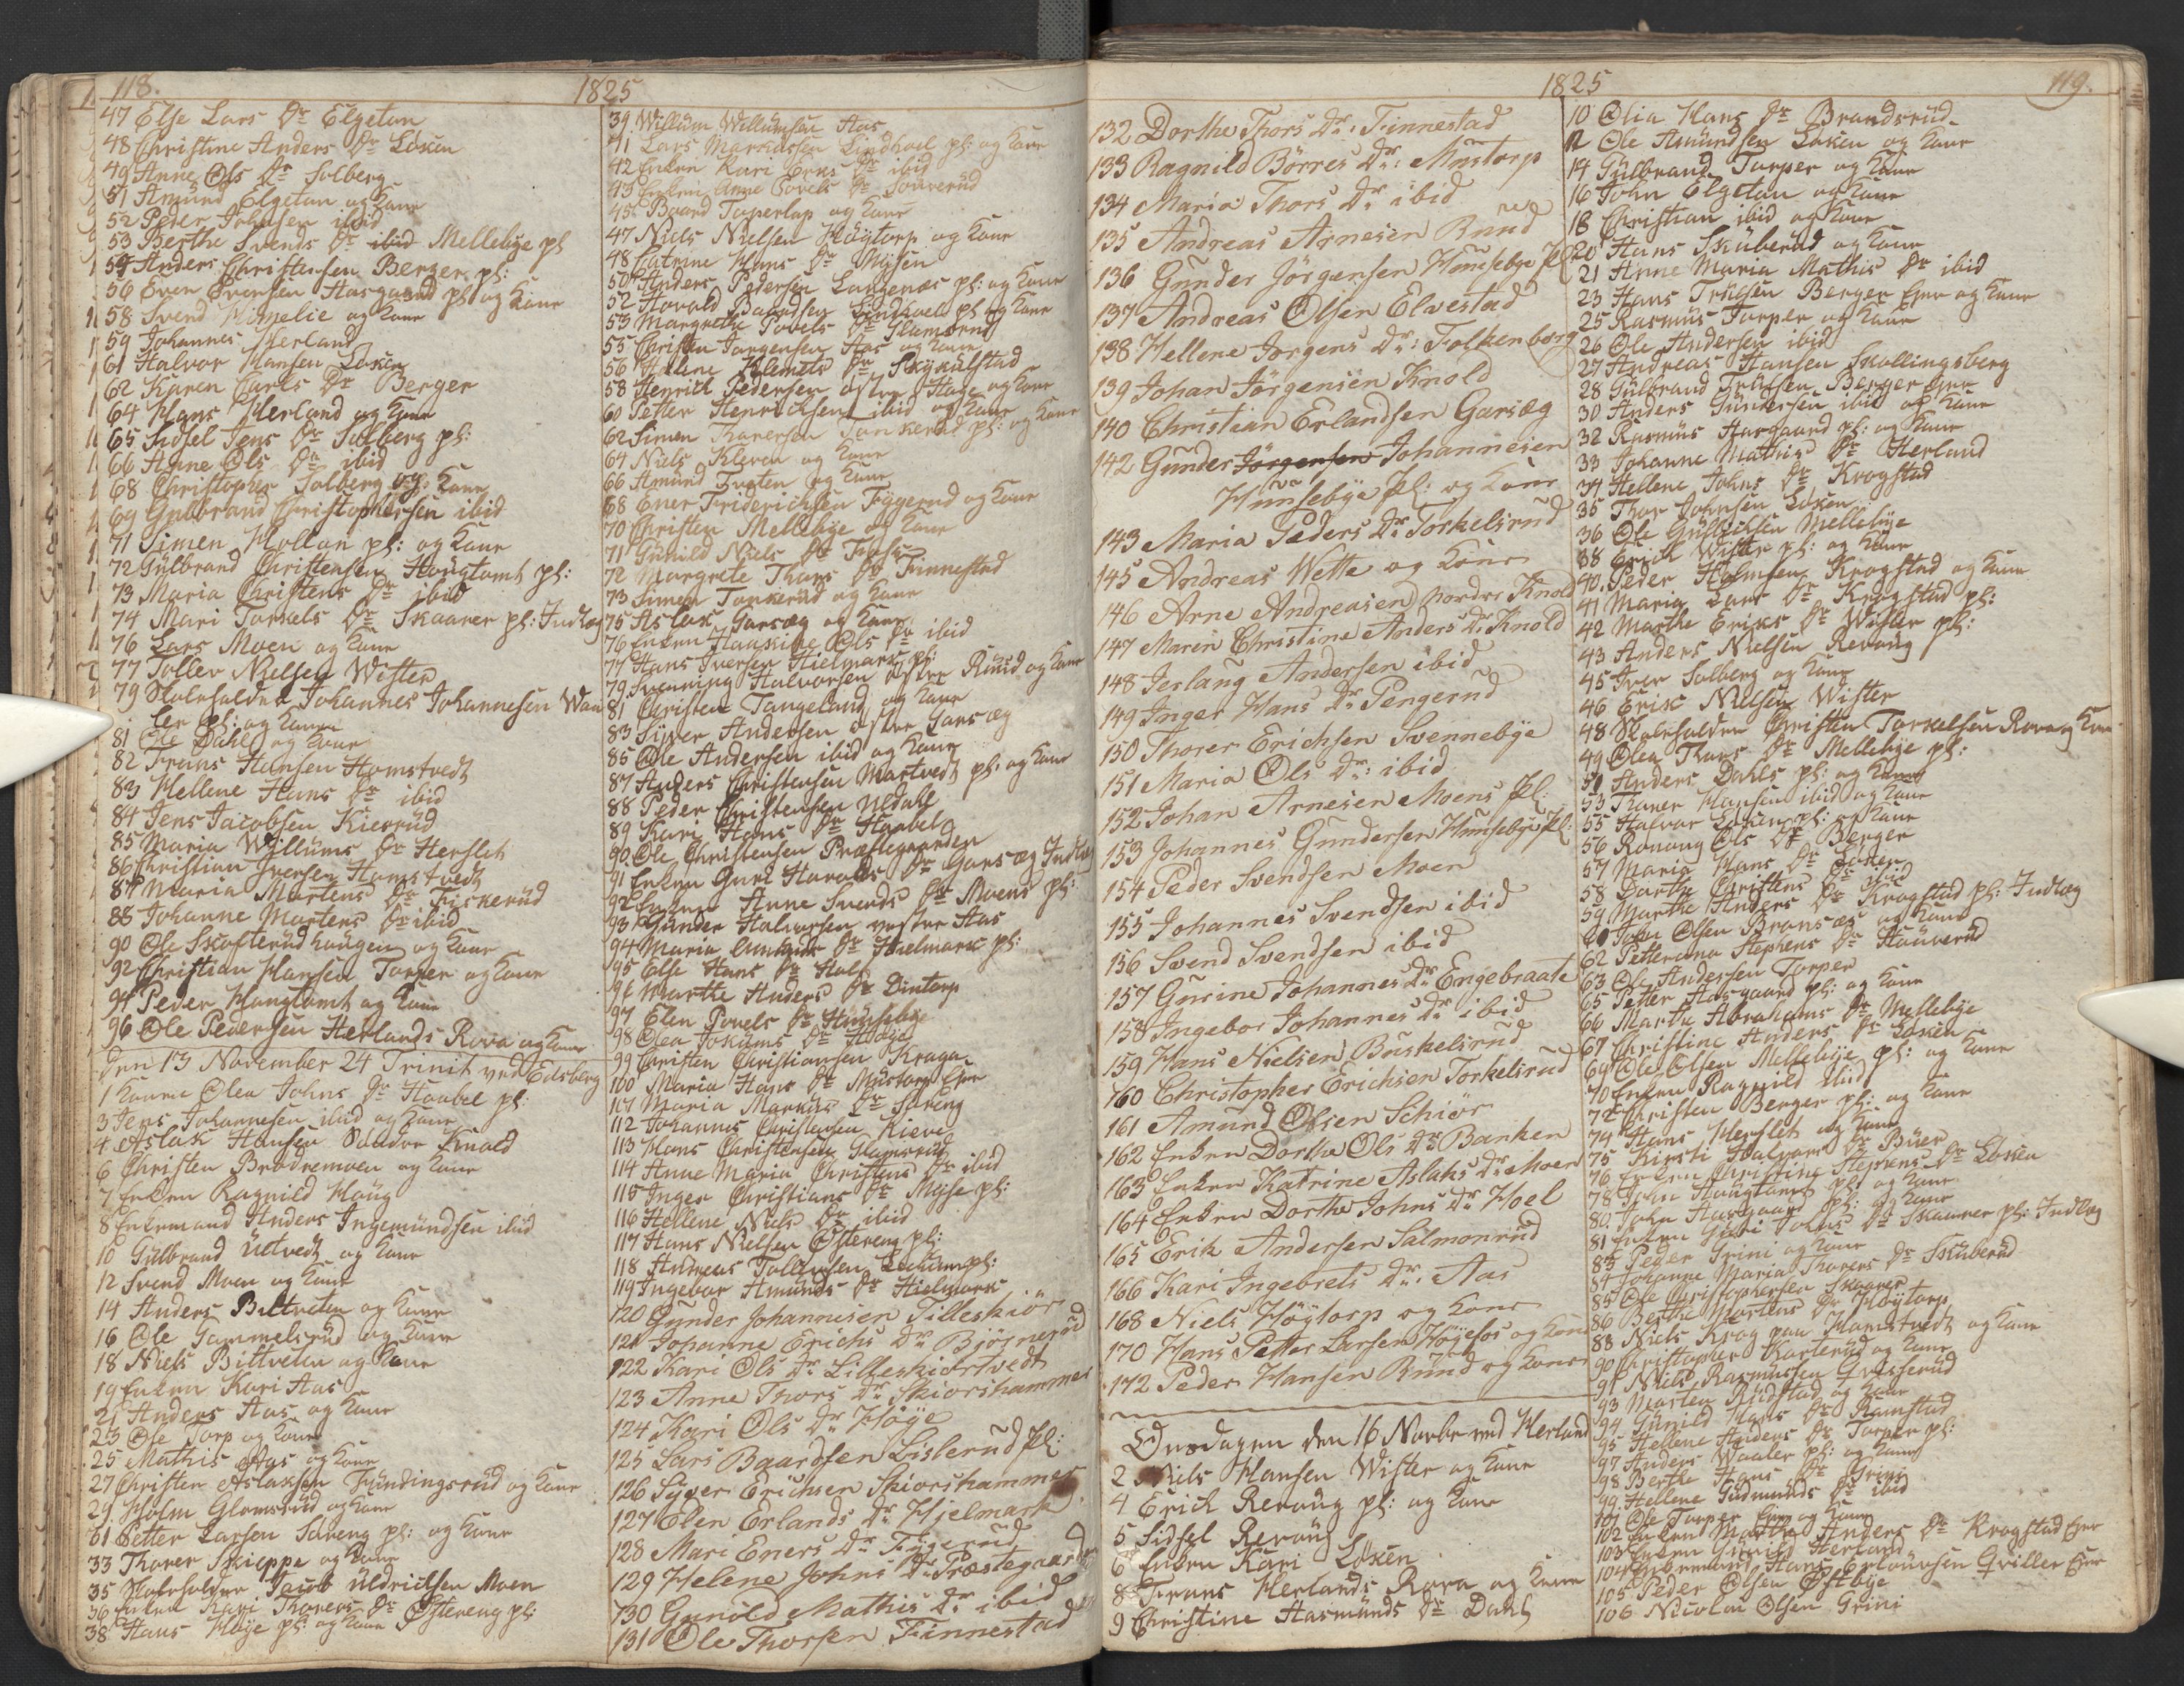 118.
1825
47 Else Lars Dr Elgetun
48 Christine Anders Dr Löken
49 Anne Ols Dr Solberg
51 Amund Elgetun og Kone
52 Peder Johnsen ibid
53 Berthe Svends Dr ibid Mellebye pl
54 Anders Christensen Berger pl:
56 Even Evensen Aasgaard pl og Kone
58 Svend Himelie og Kone
59 Johannes Herland
61 Halvor Hansen Løken
62 Karen Carls Dr Berger
64 Hans Herland og Kone
65 Sidsel Jens Dr Solberg pl:
66 Anne Ols Dr ibid
68 Christopher Solberg og Kone
69 Gulbrand Christophersen ibid
71 Simen Mollan pl: og Kone
72 Gulbrand Christensen Hougtomt pl:
73 Maria Christens Dr ibid
74 Mari Torkels Dr Skaarer pl: Indlæg
76 Lars Moen og Kone
77 Toller Nielsen Wister
79 Skoleholder Johannes Johannesen Wan
ler pl: og Kone
81 Ole Dahl og Kone
82 Frans Hansen Homstvedt
83 Hellene Hans Dr ibid
84 Jens Jacobsen Kiserud
85 Maria Willums Dr Herslet
86 Christian Iversen Homstvedt
87 Maria Martens Dr Fiskerud
88 Johanne Martens Dr ibid
90 Ole Skofterudhaugen og Kone
92 Christian Hansen Torper og Kone
94 Peder Hougtomt og Kone
96 Ole Pedersen Herlands Rova og Kone
den 13 November 24 Trinit ved Edsberg
1 Konen Olea Johns Dr Haabel pl:
3 Jens Johannesen ibid og Kone
4 Aslak Hansen Knold
6 Christen Brødremoen og Kone
7 Enken Ragnild Haug
8 Enkemand Anders Ingemundsen ibid
10 Gulbrand Ultvedt og Kone
12 Svend Moen og Kone
14 Anders Biltveten og Kone
16 Ole Gammelsrud og Kone
18 Niels Bittveten og Kone
19 Enken Kari Aas
21 Anders Aas og Kone
23 Ole Torp og Kone
25 Mathis Aas og Kone
27 Christen Aslaksen Fundingsrud og Kone
29 Holm Glomsrud og Kone
31 Petter Larsen Sareng pl: og Kone
33 Thorer Skieppe og Kone
35 Skoleholder Jacob Uldrichsen Moen
36 Enken Kari Thorers Dr Østereng pl:
38 Hans Høje pl: og Kone
39 Willum Willumsen Aas
41 Lars Markussen Lindhoel pl: og Kone
42 Enken Kari Ers Dr ibid
43 Enken Anne Povels Dr Souverud
45 Baard Toperlap og Kone
47 Niels Nielsen Høytorp og Kone
48 Catrine Hans Dr Mysen
50 Anders Pedersen Langenæs pl: og Kone
52 Hovald Baardsen Lindhoel pl og Kone
53 Margrethe Povels Dr Glomsrud
55 Christen Jørgensen Aas og Kone
56 Helene Klemets Dr Skykulstad
58 Henrich Pedersen østre Hage og Kone
60 Petter Henrichsen ibid og Kone
62 Simen Thorersen Tonkerud pl: og Kone
64 Niels Kleven og Kone
66 Amund Tveten og Kone
68 Ener Friderichsen Figgerud og Kone
70 Christen Mellebye og Kone
71 Gunild Niels Dr
72 Margrete Thors Dr Finnestad
73 Simen Tonkerud og Kone
75 Aslak Garsæg og Kone
76 Enken Haaskine Ols Dr ibid
77 Hans Iversen Hielmark pl:
79 Svenning Halvorsen østre Ruud og Kone
81 Christen Tangeland og Kone
83 Siver Andersen østre Garsæg
85 Ole Andersen ibid og Kone
87 Anders Christensen Martvedt pl: og Kone
88 Peder Christensen Nedall
89 Kari Hans Dr Haabel
90 Ole Christensen Præstegaarden
91 Enken Guri Hovalds Dr Garsæg Indlæg
92 Enken Anne Svends Dr Moens pl:
93 Gunder Halvorsen vestre Aas
94 Maria Amunds Dr Hielmark pl:
95 Else Hans Dr Hol
96 Marthe Anders Dr Dintorp
97 Elen Povels Dr Hunsebye
98 Olea Jokums Dr Høye
99 Christen Christiansen Kraga
100 Maria Hans Dr Mustorp Eier
111 Maria Markus Dr Sareng
112 Johannes Christensen Kieve
113 Hans Christensen Glomsrud
114 Anne Maria Christens Dr ibid
115 Inger Christians Dr Myse pl:
116 Hellene Niels Dr ibid
117 Hans Nielsen Østereng pl:
118 Andreas Tollersen pl:
119 Ingebor Amunds Dr Hielmark
120 Gunder Johannesen Lilleskiør
121 Johanne Erichs Dr Bjørnerud
122 Kari Ols Dr Lilleskiørtvedt
123 Anne Thors Dr Skiorshammer
124 Kari Ols Dr Høye
125 Lars Baardsen Lislerud Pl:
126 Syver Erichsen Skiorshammer
127 Elen Erlands Dr Hjelmark
128 Mari Eners Dr Figgerud
129 Helene Johns Dr Præstegaarden
130 Gunold Mathis Dr ibid
131 Ole Thorsen Finnestad
1825
119.
132 Dorthe Thors Dr: Finnestad
133 Ragnild Børres Dr: Mustorp
134 Maria Thors Dr ibid
135 Andreas Arnesen Ruud
136 Gunder Jørgensen Hunsebye Pl
137 Andreas Olsen Elvestad
138 Hellene Jorgens Dr: Folkenborg
139 Johan Jörgensen Knold
140 Christian Erlandsen Garsæg
142 Gunder Jørgensen Johannesen
Hunsebye Pl: og Kone
143 Maria Peders Dr Torkelsrud
145 Andreas Wette og Kone
146 Arne Andreasen nordre Knold
147 Maren Christine Anders Dr Knold
148 Jerlang Andersen ibid
149 Inger Hans Dr Pengerud
150 Thorer Erichsen Svennebye
151 Maria Ols Dr: ibid
152 Johan Arnesen Moens Pl:
153 Johannes Gundersen Hunsebye Pl:
154 Peder Svendsen Moen
155 Johannes Svendsen ibid
156 Svend Svendsen ibid
157 Gurine Johannes Dr Engebraate
158 Ingebor Johannes Dr ibid
159 Hans Nielsen Buskelsrud
160 Christopher Erichsen Torkelsrud
161 Amund Olsen Schiør
162 Enken Dorthe Ols Dr Banken
163 Enken Katrine Aslaks Dr Moen
164 Enken Dorthe Johns Dr Hoel
165 Erik Andersen Salmonrud
166 Kari Ingebrets Dr: Aas
168 Niels Høytorp og Kone
170 Hans Petter Larsen Høyefos og Kone
172 Peder Hansen Ruud og Kone
Onsdagen den 16 Novbr ved Herland
2 Niels Hansen Wister og Kone
4 Erich Revoug pl: og Kone
5 Sidsel Revoug
6 Enken Kari Løken
8 Frans Herlands Rova og Kone
9 Christine Aasmunds Dr Dahl
10 Olia Hans Dr Brandsrud
12 Ole Amundsen Løken og Kone
14 Gulbrand Torper og Kone
16 John Elgetun og Kone
18 Christian ibid og Kone
20 Hans Skuberud og Kone
21 Anne Maria Mathis Dr ibid
23 Hans Trulsen Berger Eier og Kone
25 Rasmus Torper og Kone
26 Ole Andersen ibid
27 Andreas Hansen Skollingsberg
28 Gulbrand Trulsen Berger Eier
30 Anders Gundersen ibid og Kone
32 Rasmus Aasgaard pl: og Kone
33 Johanne Mathis Dr Herland
34 Hellene Johns Dr Krogstad
35 Thor Johnsen Løken
36 Ole Gulbrandsen Mellebye
38 Erich Wister pl: og Kone
40 Peder Holmsen Krogstad og Kone
41 Maria Lars Dr Krogstad pl:
42 Marthe Eriks Dr Wister pl:
43 Anders Nielsen Revoug
45 Iver Solberg og Kone
46 Erik Nielsen Wister
48 Skoleholder Christen Torkelsen Rova og Kone
49 Olea Thors Dr Mellebye pl:
51 Anders Dahls pl: og Kone
53 Thorer Hansen ibid og Kone
55 Halvor Løken pl: og Kone
56 Ronoug Ols Dr Berger
57 Maria Hans Dr Løken
58 Dorthe Christens Dr ibid
59 Marthe Anders Dr Krogstad pl: Indlæg
61 John Olsen Bronsæs og Kone
62 Petterana Stephens Dr Houverud
63 Ole Andersen Torper
65 Petter Aasgaard pl: og Kone
66 Marthe Abrahams Dr Mellebye
67 Christine Anders Dr Løken
69 Ole Olsen Mellebye pl: og Kone
70 Enken Ragnild ibid
72 Christen Berger pl: og Kone
74 Hans Herslet og Kone
75 Kirsti Halvors Dr Buer
76 Enken Christine Stephens Dr Løken
78 John Hougtomt pl: og Kone
80 John Aasgaard pl: og Kone
81 Enken Guri Johns Dr Skaarer pl: Indlæg
83 Peder Grini og Kone
84 Johanne Maria Thorers Dr Skuberud
85 Ole Christophersen Skaarer
86 Berthe Martens Dr Høytorp
88 Niels Krog paa Homstvedt og Kone
90 Christopher Korterud og Kone
91 Niels Rasmussen Grasserud
93 Morten Ridstad og Kone
94 Gunild Hans Dr Ramstad
95 Hellene Anders Dr Torper pl:
97 Anders Waaler pl: og Kone
98 Berthe Hans Dr Grini
99 Hellene Gudmunds Dr ibid
101 Ole Torper Eier og Kone
102 Enken Marthe Anders Dr Krogstad Eier
103 Enken Gunild Herland
104 Enkemand Hans Erlandsen Qviller Eier
105 Peder Olsen Østbye
106 Nicolai Olsen Grini